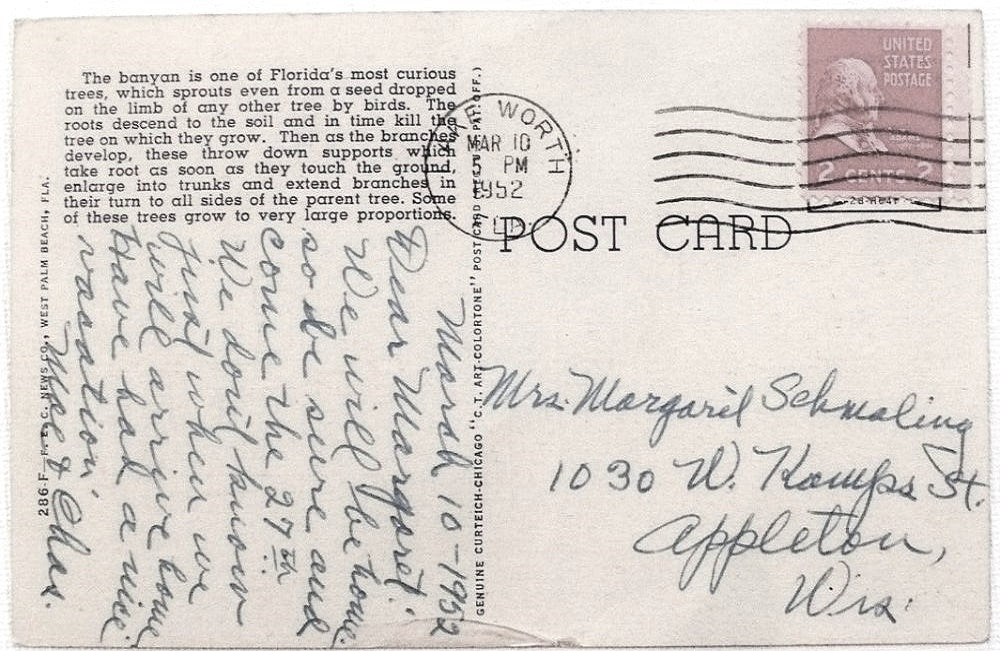 The banyan is one of Florida's most curious
trees, which sprouts even from a seed dropped
on the limb of any other tree by birds. The
roots descend to the soil and in time kill the
tree on which they grow. Then as the branches
develop, these throw down supports which
take root as soon as they touch the ground,
enlarge into trunks and extend branches in
their turn to all sides of the parent tree. Some
of these trees grow to very large proportions.
March 10-1952
Dear Margaret:
We will be home
so be sure and
come the 27th
We don't know
just when we
will arrive home
Have had a nice
vacation
Mae & Chas.
286-F—F. E. C. NEWS CO., WEST PALM BEACH, FLA.
GENUINE CURTEICH-CHICAGO "C. T. ART-COLORTONE" POST CARD PAT. OFF.)
WORTH
MAR 10
5 PM
1952
UNITED
STATES
POSTAGE
2 CENTS 2
POST CARD
Mrs. Margaret Schmaling
1030 W. Kamps St.
Appleton,
Wis.